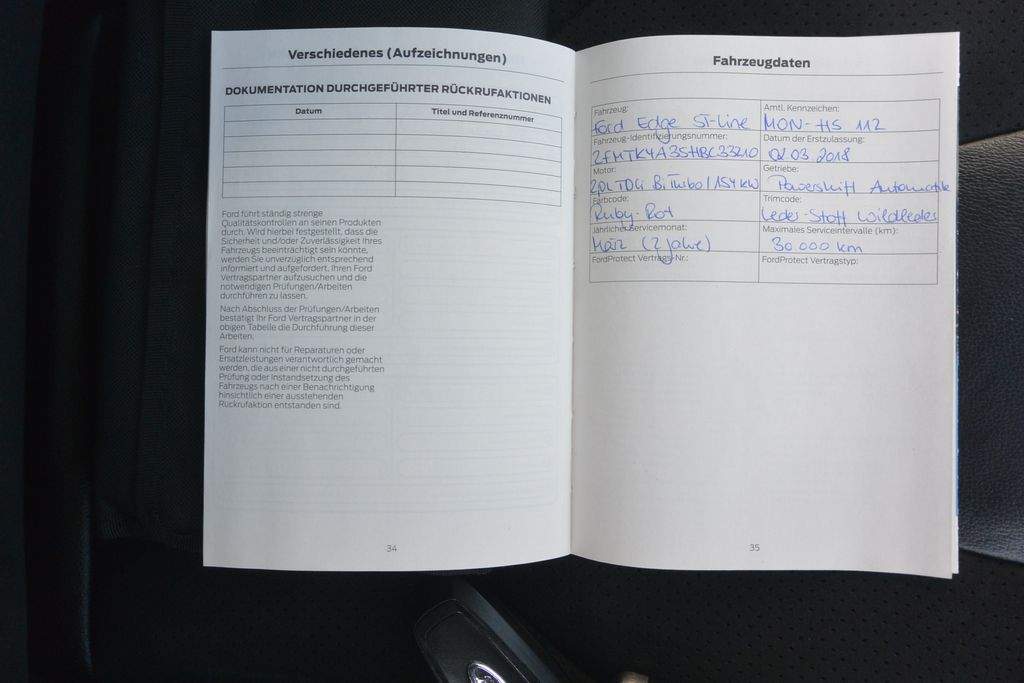 Verschiedenes (Aufzeichnungen)
DOKUMENTATION DURCHGEFÜHRTER RÜCKRUFAKTIONEN
Datum Titel und Referenznummer
Ford führt ständig strenge
Qualitätskontrollen an seinen Produkten
durch. Wird hierbei festgestellt, dass die
Sicherheit und/oder Zuverlässigkeit Ihres
Fahrzeugs beeinträchtigt sein könnte,
werden Sie unverzüglich entsprechend
informiert und aufgefordert, Ihren Ford
Vertragspartner aufzusuchen und die
notwendigen Prüfungen/Arbeiten
durchführen zu lassen.
Nach Abschluss der Prüfungen/Arbeiten
bestätigt Ihr Ford Vertragspartner in der
obigen Tabelle die Durchführung dieser
Arbeiten.
Ford kann nicht für Reparaturen oder
Ersatzleistungen verantwortlich gemacht
werden, die aus einer nicht durchgeführten
Prüfung oder Instandsetzung des
Fahrzeugs nach einer Benachrichtigung
hinsichtlich einer ausstehenden
Rückrufaktion entstanden sind.
34
Fahrzeugdaten
Fahrzeug: Amtl. Kennzeichen:
Ford Edge ST-Line MON-HS 112
Fahrzeug-Identifizierungsnummer: Datum der Erstzulassung:
2FMTK4A35HBC33210 02.03.2018
Motor: Getriebe:
2,0L TDCi Bi Turbo/154 kW Powershift Automatik
Farbcode: Trimcode:
Ruby-Rot Leder-Stoff Wildleder
Jährlicher Servicemonat: Maximales Serviceintervalle (km):
März (2 Jahre) 30000 km
FordProtect Vertrags-Nr.: FordProtect Vertragstyp:
35